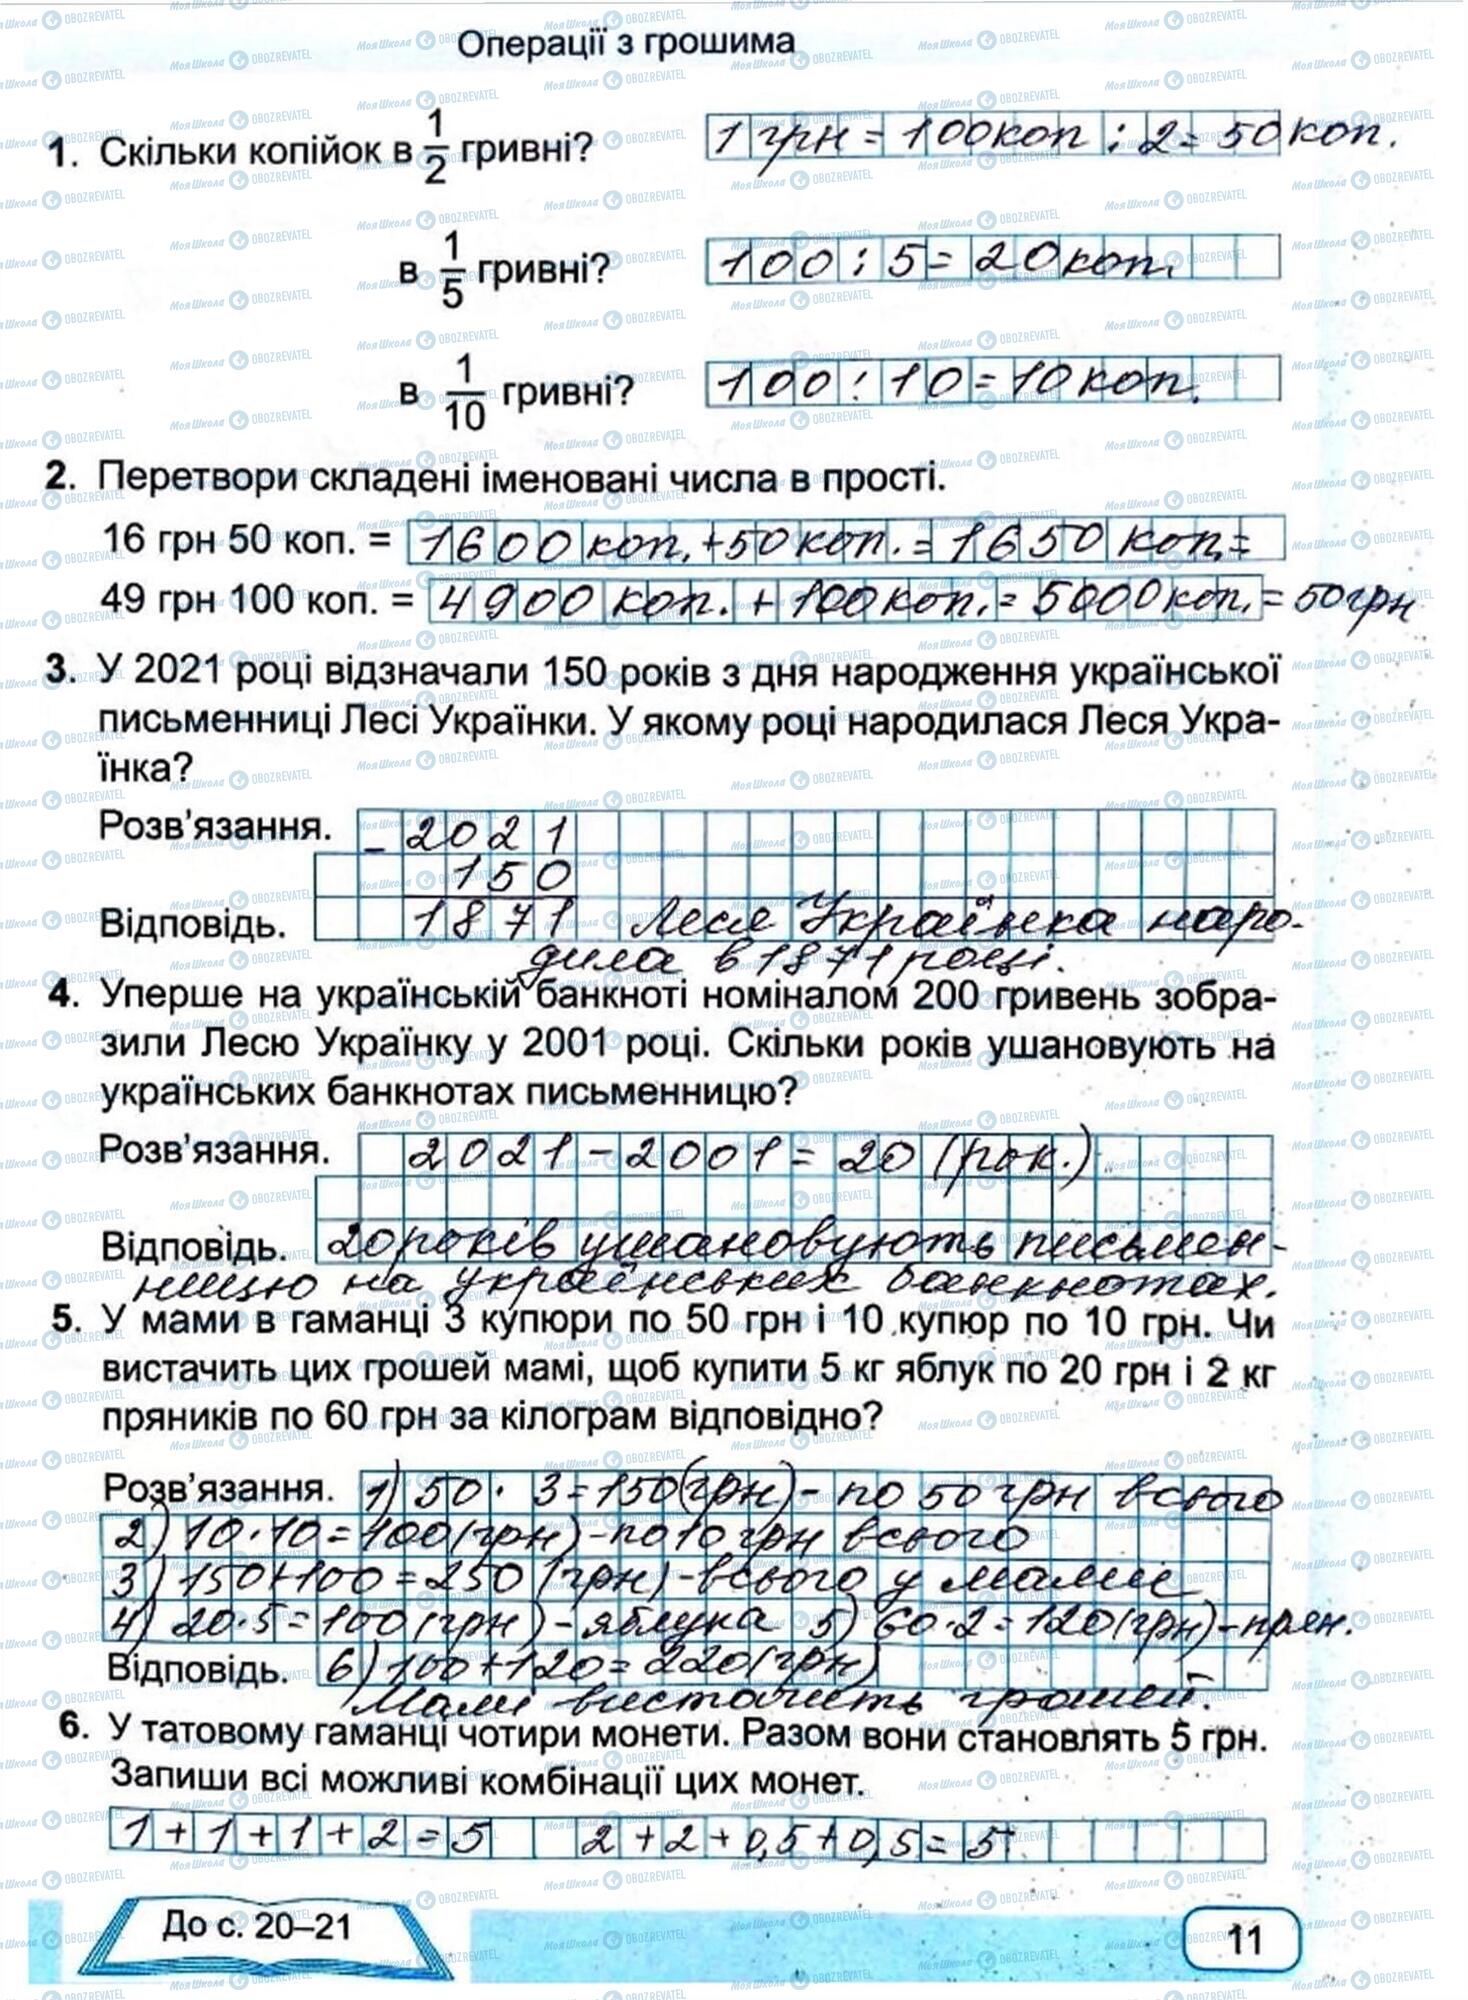 Операції з грошима
1. Скільки копійок в 1/2 гривні? 1 грн = 100 коп : 2 = 50 коп.
в 1/5 гривні? 100 : 5 = 20 коп.
в 1/10 гривні? 100 : 10 = 10 коп.
2. Перетвори складені іменовані числа в прості.
16 грн 50 коп. = 1600 коп. + 50 коп. = 1650 коп. =
49 грн 100 коп. = 4900 коп. + 100 коп. = 5000 коп. = 50 грн
3. У 2021 році відзначали 150 років з дня народження української
письменниці Лесі Українки. У якому році народилася Леся Укра-
їнка?
Розв'язання. - 2021
150
Відповідь. 1871 Леся Українка наро-
дила в 1871 році.
4. Уперше на українській банкноті номіналом 200 гривень зобра-
зили Лесю Українку у 2001 році. Скільки років ушановують на
українських банкнотах письменницю?
Розв'язання. 2021 - 2001 = 20 (рок.)
Відповідь. 20 років ушановують письмен-
ницю на українських банкнотах.
5. У мами в гаманці 3 купюри по 50 грн і 10 купюр по 10 грн. Чи
вистачить цих грошей мамі, щоб купити 5 кг яблук по 20 грн і 2 кг
пряників по 60 грн за кілограм відповідно?
Розв'язання. 1) 50 · 3 = 150 (грн) - по 50 грн всього
2) 10 · 10 = 100 (грн) - по 10 грн всього
3) 150 + 100 = 250 (грн) - всього у мамиє
4) 20 · 5 = 100 (грн) - яблука 5) 60 · 2 = 120 (грн) - прян.
Відповідь. 6) 100 + 120 = 220 (грн)
Мамі вистачить грошей.
6. У татовому гаманці чотири монети. Разом вони становлять 5 грн.
Запиши всі можливі комбінації цих монет.
1 + 1 + 1 + 2 = 5 2 + 2 + 0,5 + 0,5 = 5
До с. 20–21
11
МояШкола OBOZREVATEL